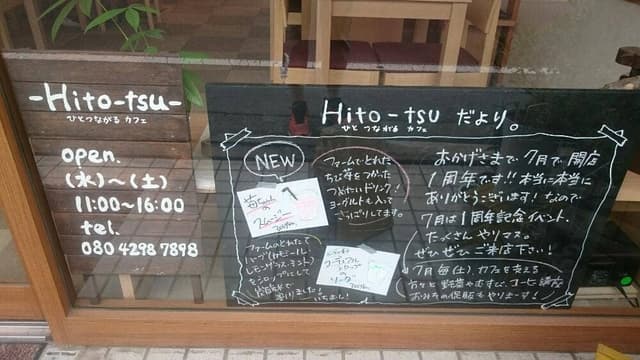 -Hito-tsu-
ひとつながる カフェ
open.
(水)～(土)
11:00～16:00
tel.
080 4298 7898
Hito-tsu だより。
ひとつながる カフェ
NEW
ファームでとれた
ちび苺をつかった
つめたいドリンク!
ヨーグルトも入って
さっぱりしてます。
苺ちゃん
スムージー
ファームのとれたて
ハーブ(カモミール
レモングラス・ミント)
をシロップにして
炭酸水で
割りました!
の
ソーダ
おかげさまで7月で開店
1周年です!!本当に本当に
ありがとうございます!なので
7月は1周年記念イベント、
たっくさん やりマス。
ぜひぜひご来店下さい!
7月 毎(土)、カフェを支える
方々と 野菜やむすび、コーヒー講座
おみその促販もやります!